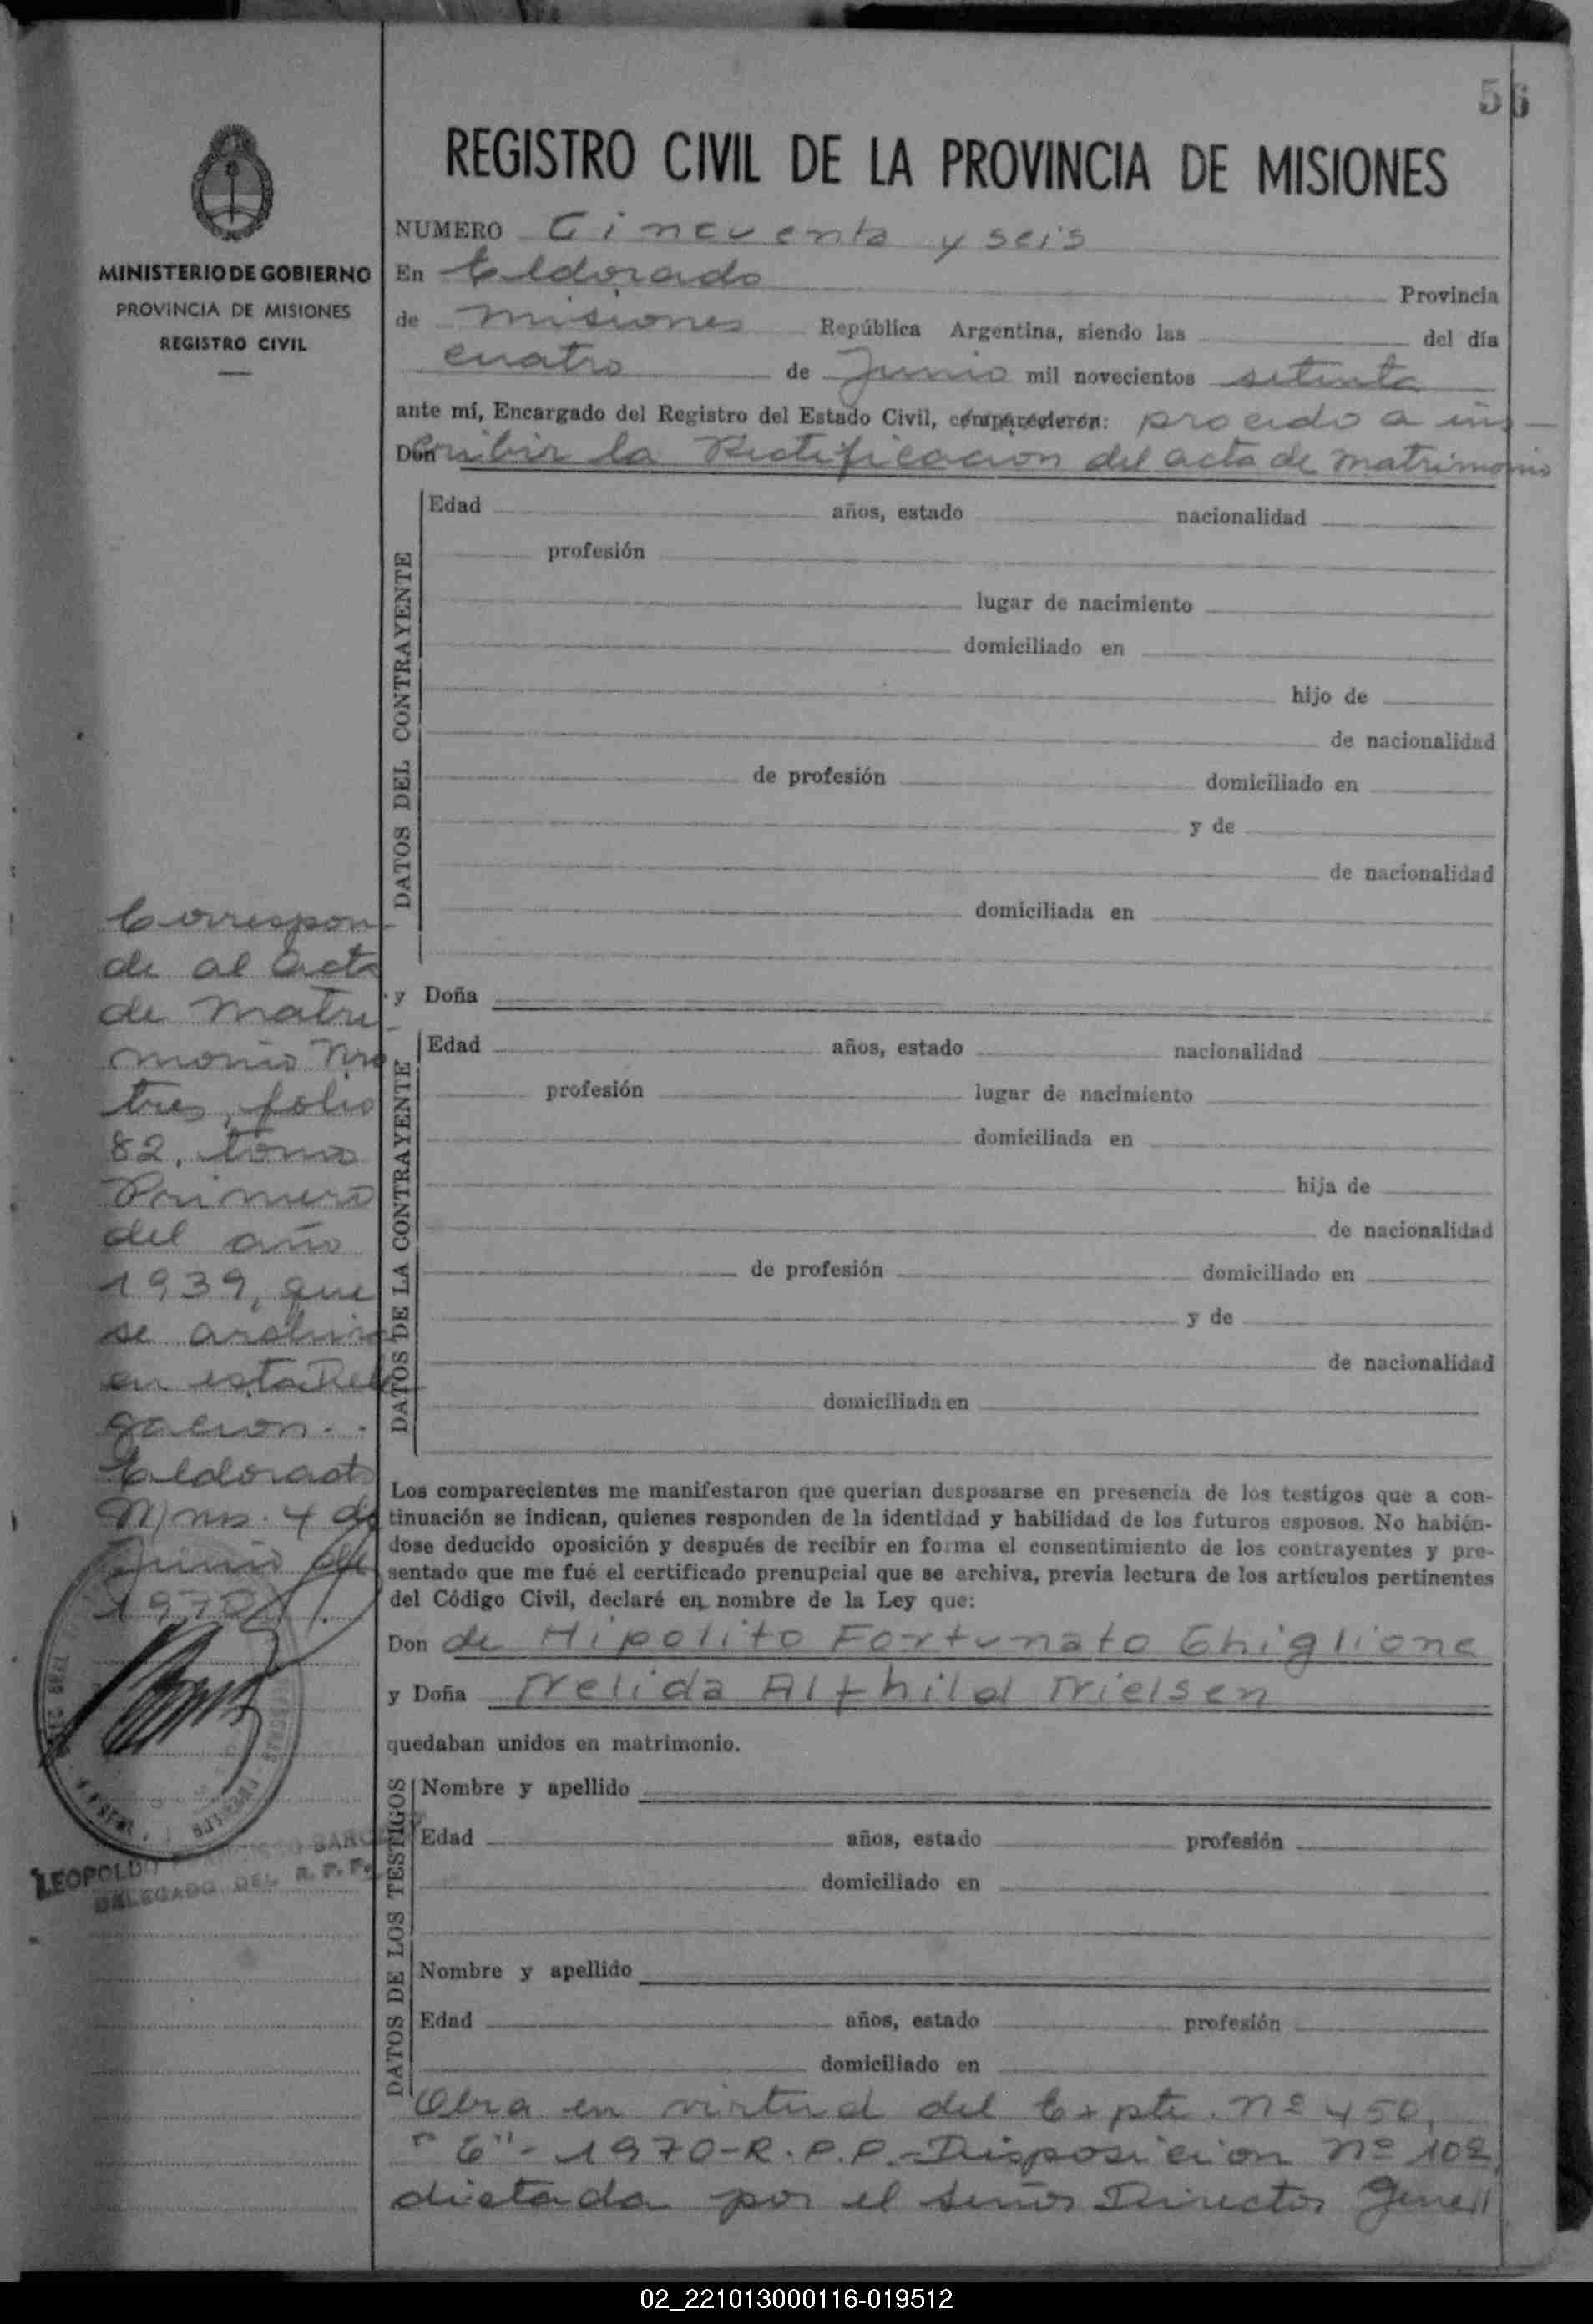 56
REGISTRO CIVIL DE LA PROVINCIA DE MISIONES
MINISTERIO DE GOBIERNO
PROVINCIA DE MISIONES
REGISTRO CIVIL
NUMERO Cincuenta y seis
En Eldorado Provincia
de Misiones República Argentina, siendo las del día
cuatro de Junio mil novecientos setenta
ante mí, Encargado del Registro del Estado Civil, comparecieron: procedo a ins-
Don cribir la Rectificacion del acta de matrimonio
DATOS DEL CONTRAYENTE
Edad años, estado nacionalidad
profesión
lugar de nacimiento
domiciliado en
hijo de
de nacionalidad
de profesión domiciliado en
y de
de nacionalidad
domiciliada en
y Doña
DATOS DE LA CONTRAYENTE
Edad años, estado nacionalidad
profesión lugar de nacimiento
domiciliada en
hija de
de nacionalidad
de profesión domiciliado en
y de
de nacionalidad
domiciliada en
Correspon-
de al acta
de matri-
monio Nro
tres, folio
82, tomo
Primero
del año
1939, que
se archiva
en esta Dele-
gacion.-
Eldorado
Mnes. 4 de
Junio de
1970
Los comparecientes me manifestaron que querían desposarse en presencia de los testigos que a con-
tinuación se indican, quienes responden de la identidad y habilidad de los futuros esposos. No habién-
dose deducido oposición y después de recibir en forma el consentimiento de los contrayentes y pre-
sentado que me fué el certificado prenupcial que se archiva, previa lectura de los artículos pertinentes
del Código Civil, declaré en nombre de la Ley que:
Don de Hipolito Fortunato Ghiglione
y Doña Nelida Alfhild Nielsen
quedaban unidos en matrimonio.
DATOS DE LOS TESTIGOS
Nombre y apellido
Edad años, estado profesión
domiciliado en
Nombre y apellido
Edad años, estado profesión
domiciliado en
LEOPOLDO
DELEGADO DEL R. P. P.
Obra en virtud del Expte. Nº 450,
"G"- 1970-R.P.P.-Disposicion Nº 102,
dictada por el señor Director Generl
02_221013000116-019512